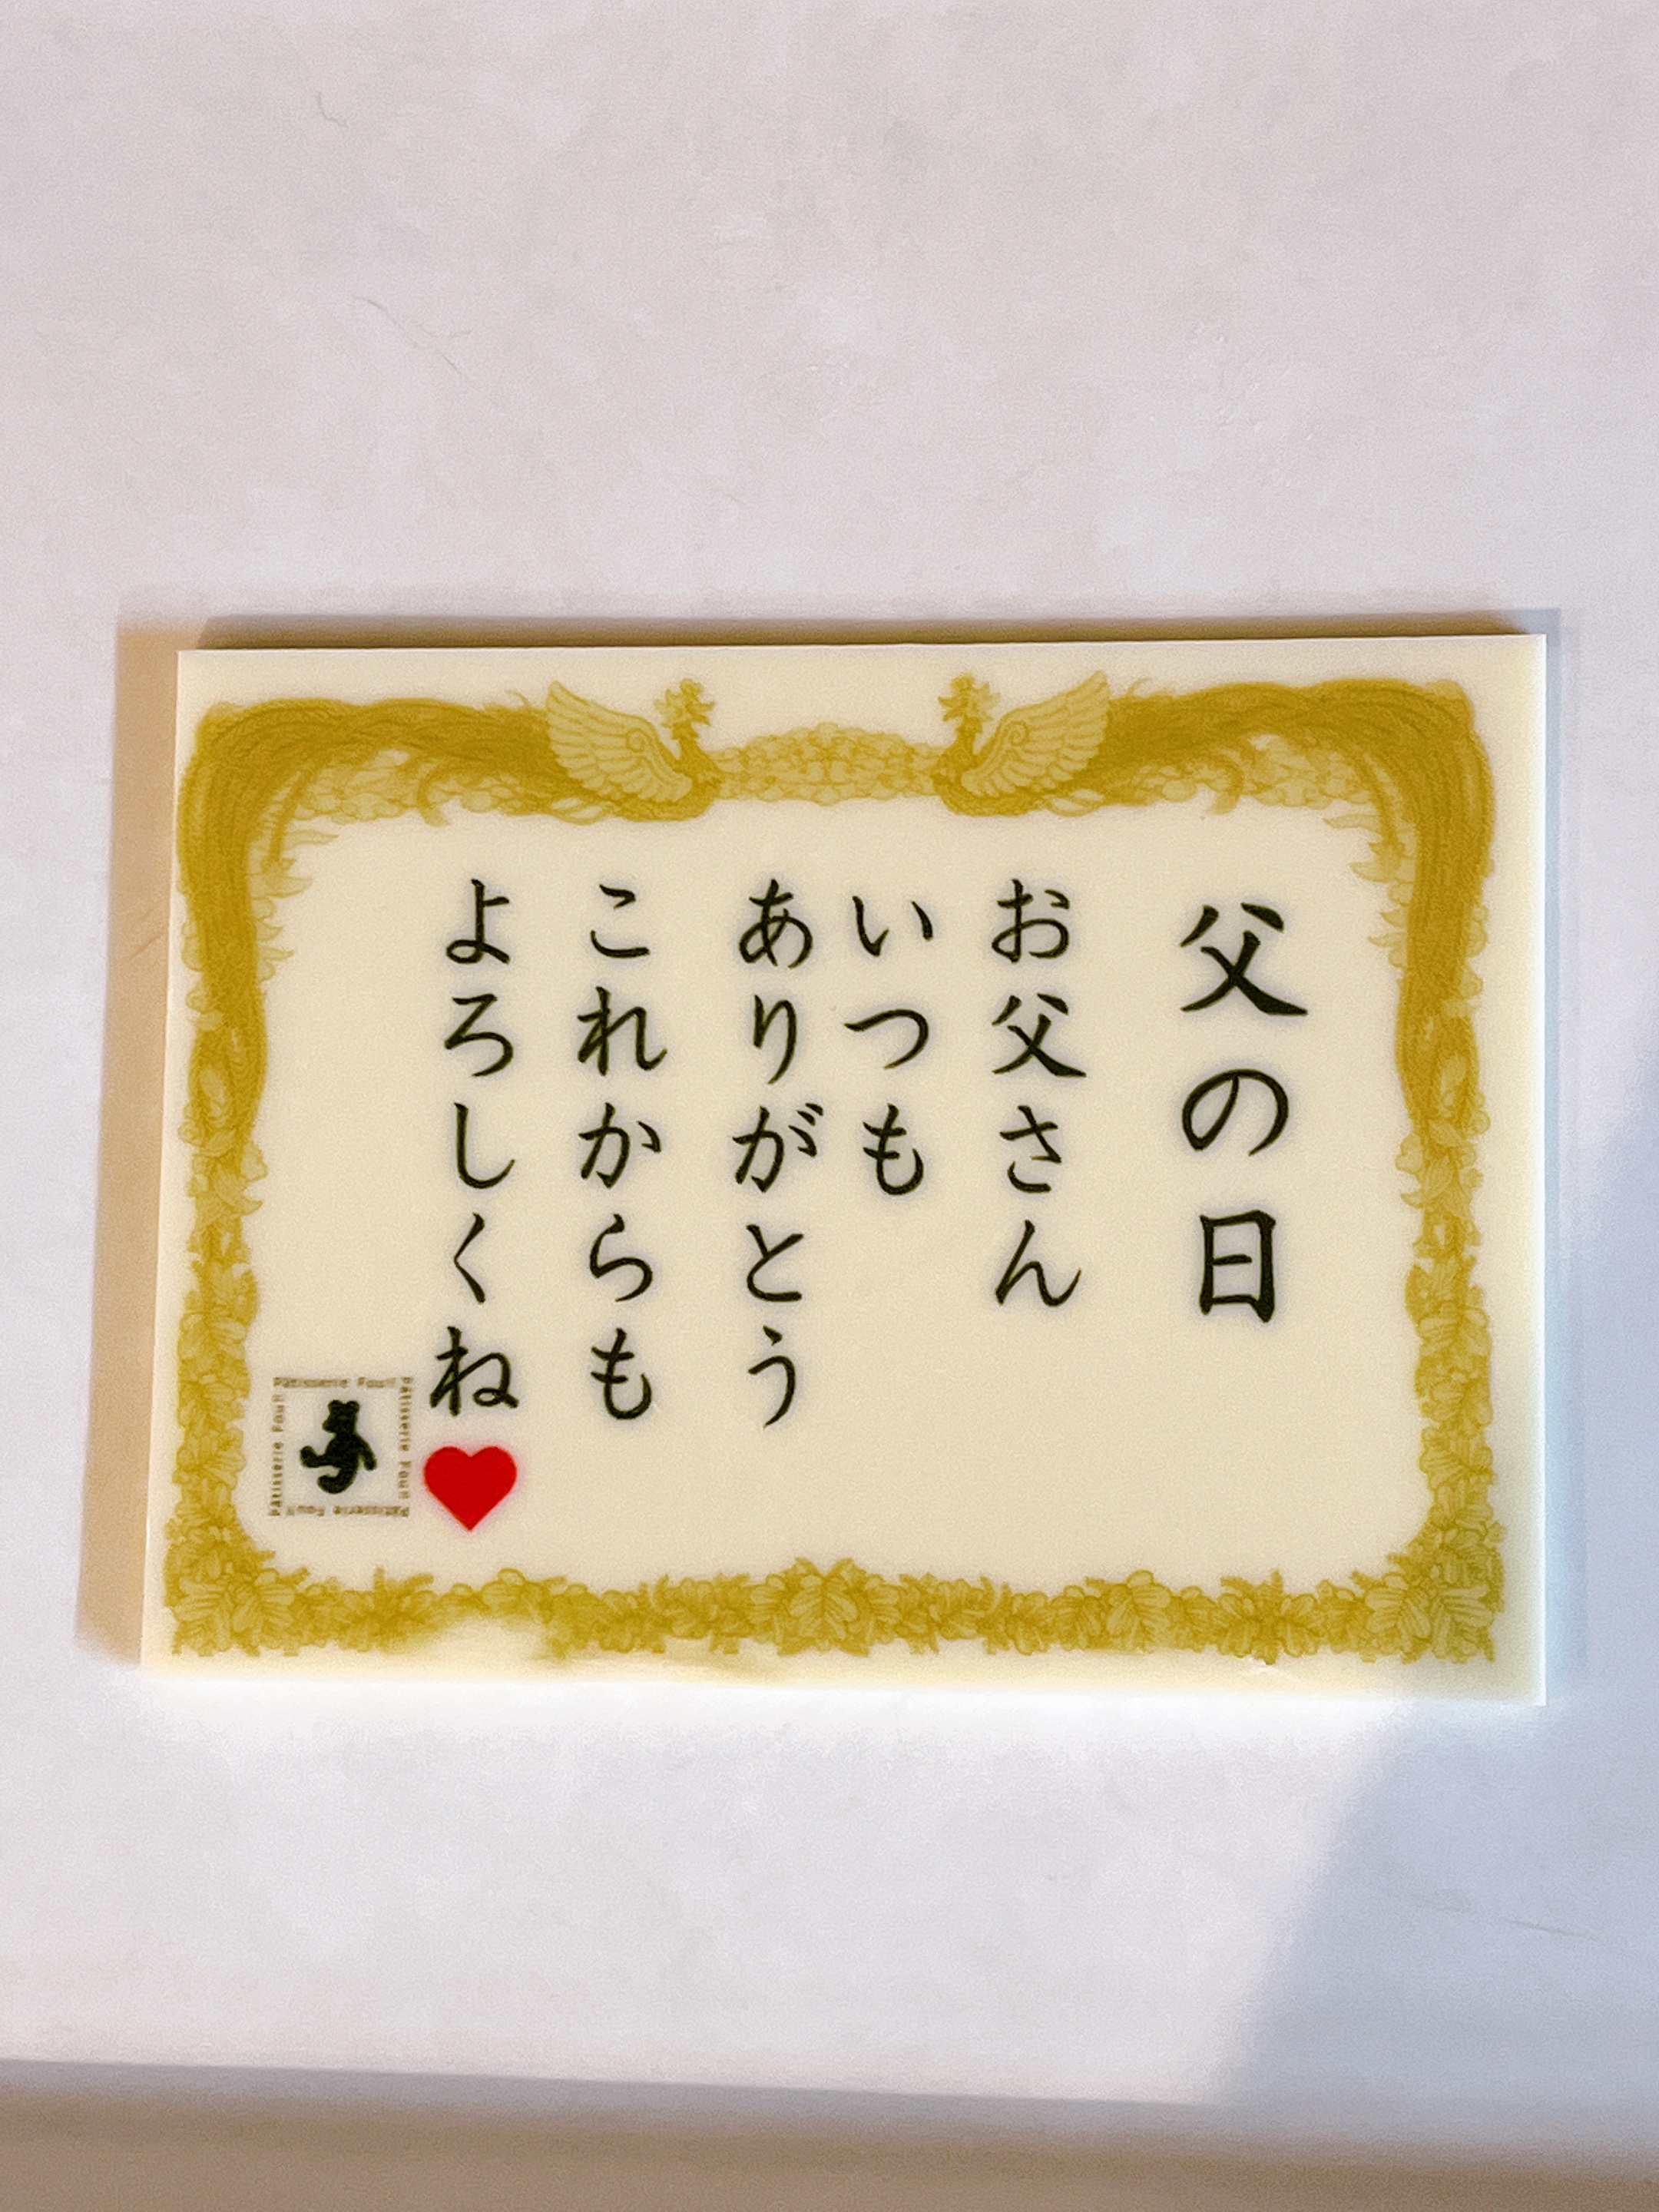 父の日
お父さん
いつも
ありがとう
これからも
よろしくね
Pâtisserie Fouil
Pâtisserie Fouil
Pâtisserie Fouil
Pâtisserie Fouil